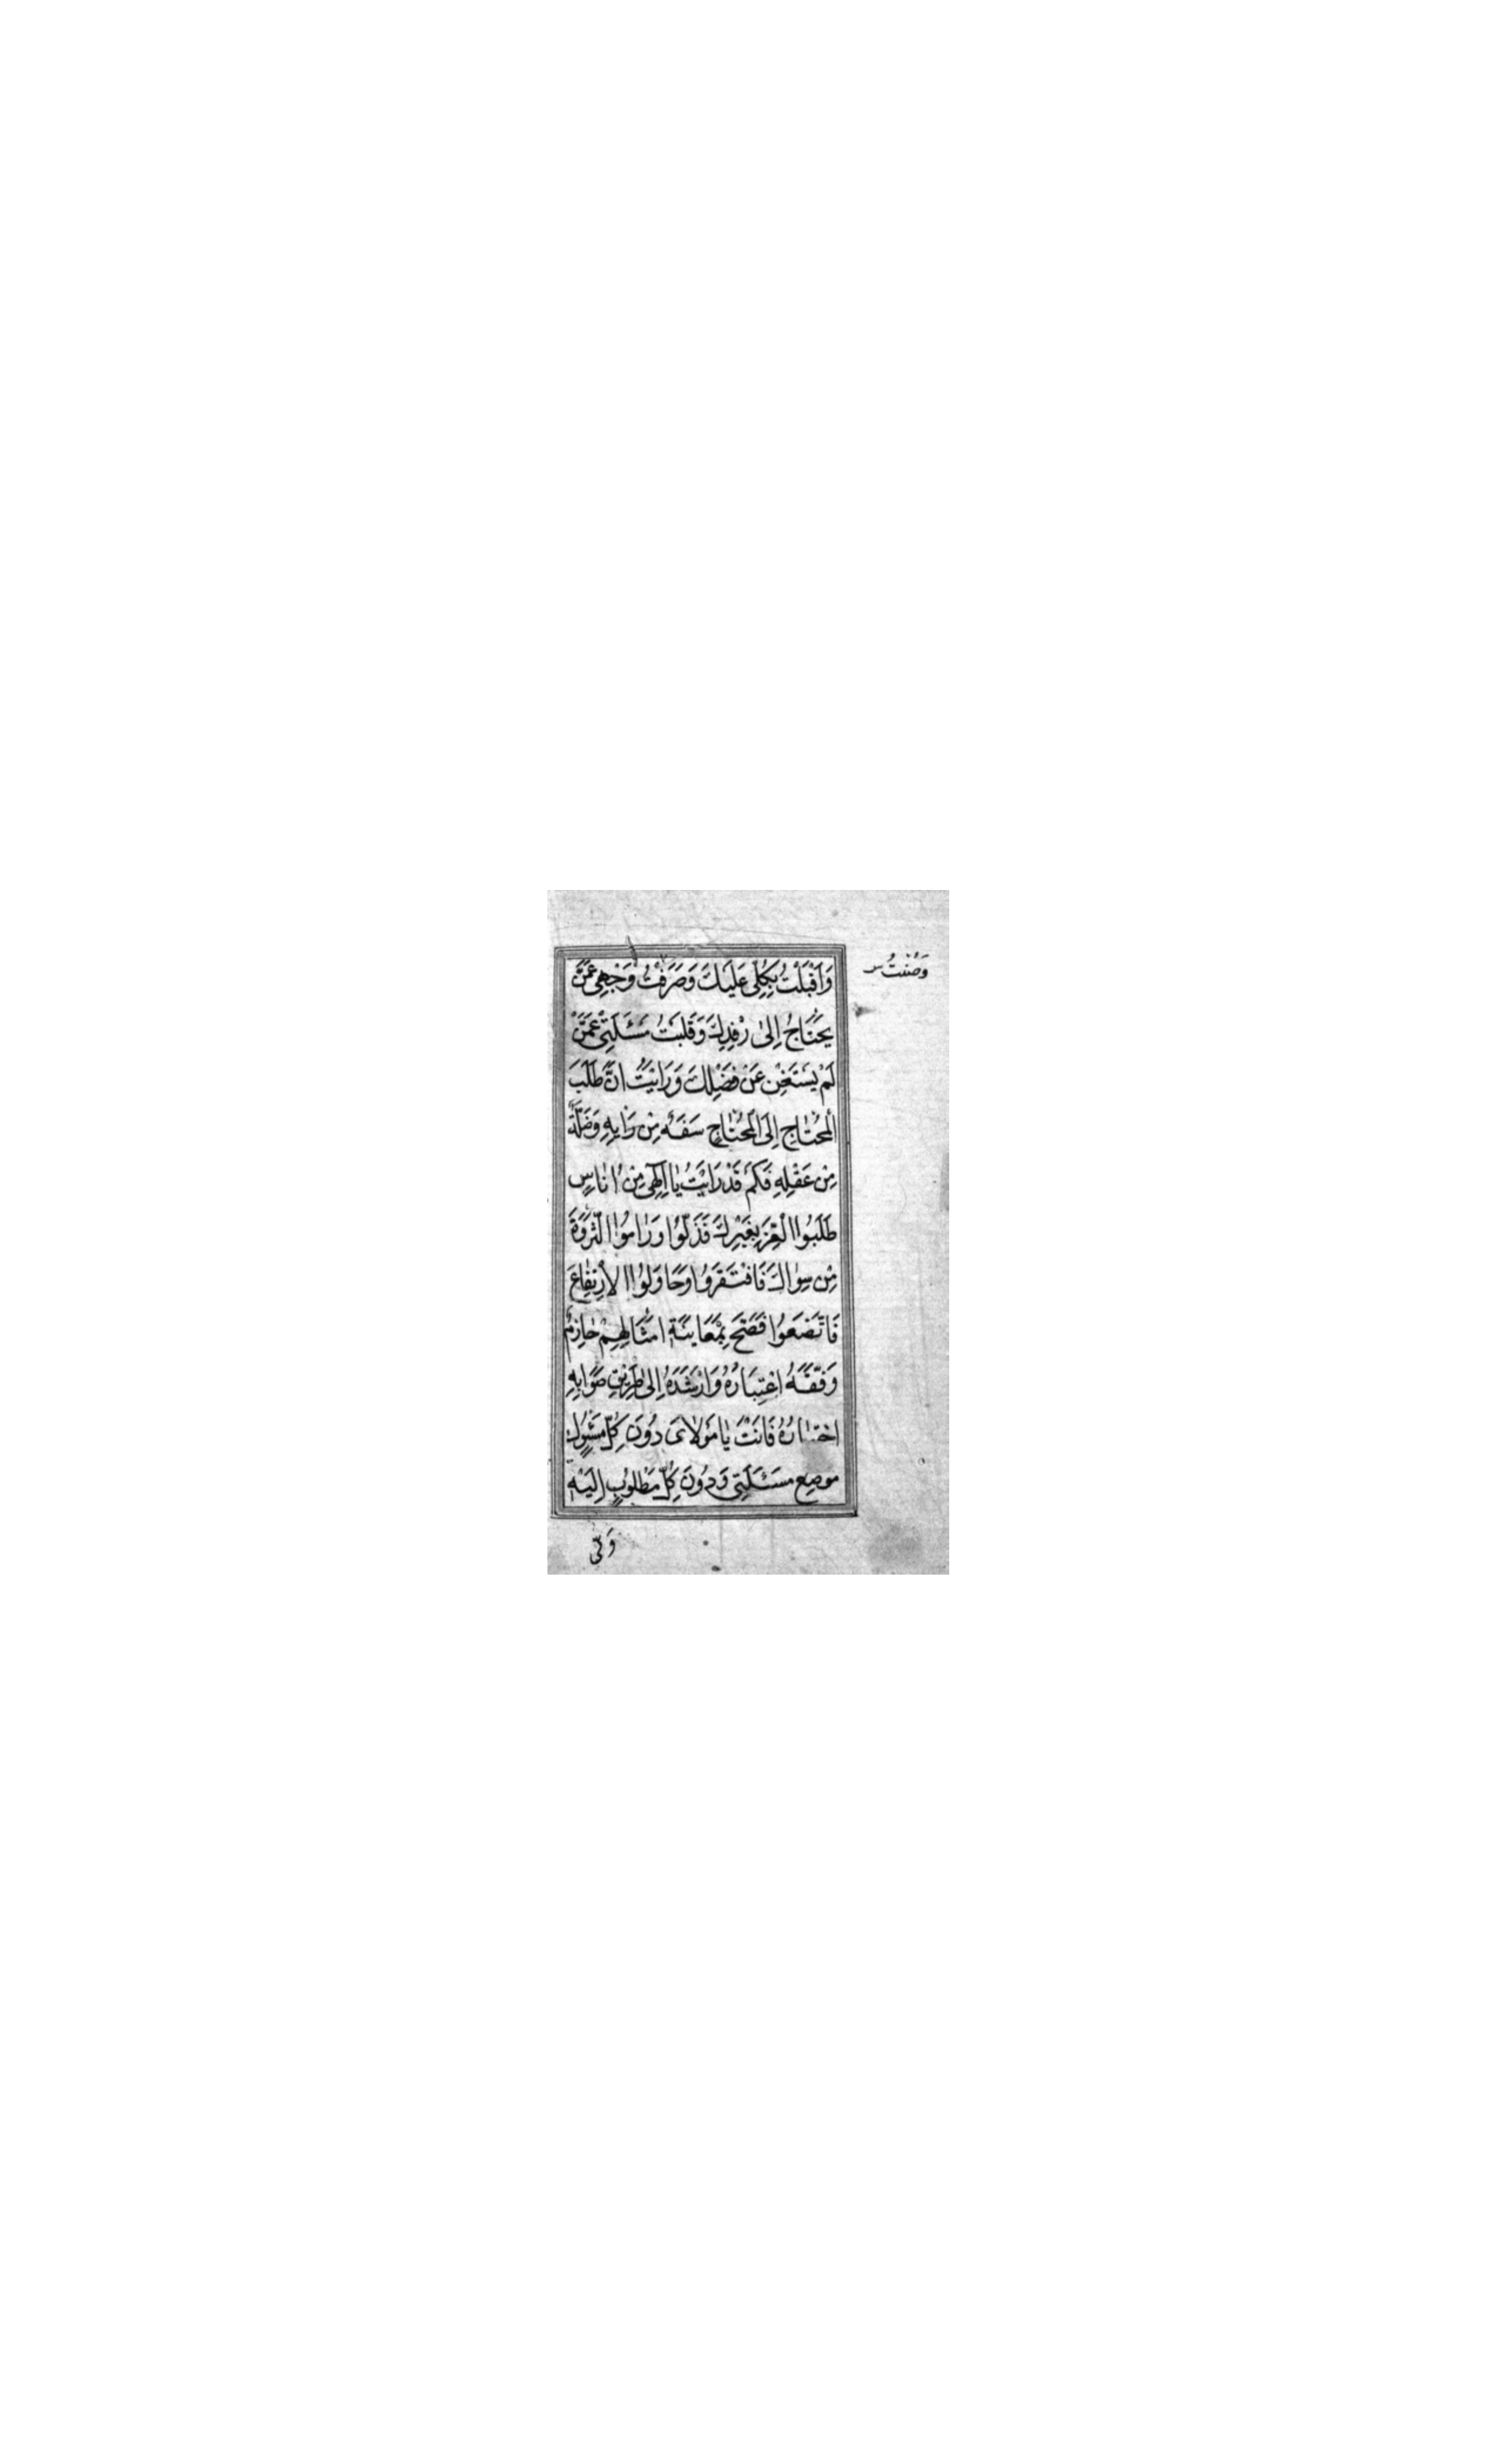 وَاَقْبَلْتُ بِكُلّى عَلَيْكَ وَصَرَفْتُ وَجْهى عَمَّنْ
وَصُنْتُ س
يَحْتَاجُ اِلىٰ رِفْدِكَ وَقَلَبْتُ مَسْئَلَتى عَمَّنْ
لَمْ يَسْتَغْنِ عَنْ فَضْلِكَ وَرَاَيْتُ اَنَّ طَلَبَ
الْمُحْتَاجِ اِلَى الْمُحْتَاجِ سَفَهٌ مِنْ رَاْيِهِ وَضَلَّةٌ
مِنْ عَقْلِهِ فَكَمْ قَدْ رَاَيْتُ يَا اِلٰهى مِنْ اُنَاسٍ
طَلَبُوا الْعِزَّ بِغَيْرِكَ فَذَلُّوا وَرَامُوا الثَّرْوَةَ
مِنْ سِوَاكَ فَافْتَقَرُوا وَحَاوَلُوا الْاِرْتِفَاعَ
فَاتَّضَعُوا فَصَحَّ بِمُعَايَنَةِ اَمْثَالِهِمْ حَازِمٌ
وَفَّقَهُ اعْتِبَارُهُ وَاَرْشَدَهُ اِلىٰ طَرِيقِ صَوَابِهِ
اخْتِيَارُهُ فَاَنْتَ يَا مَوْلَاىَ دُونَ كُلِّ مَسْئُولٍ
مَوْضِع مَسْئَلَتى وَدُونَ كُلِّ مَطْلُوبٍ اِلَيْهِ
وَلِىُّ